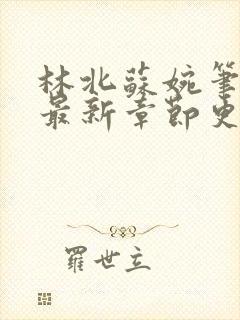 林北蘇婉筆
最新章節史
羅世立